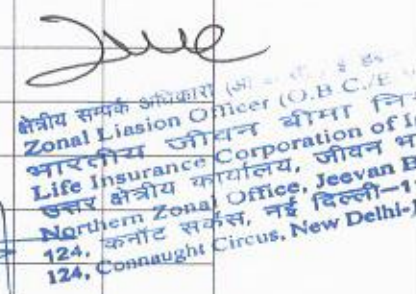 क्षेत्रीय सम्पर्क अधिकारी
Zonal Liasion Officer (O.B.C./E
भारतीय जीवन बीमा नि
Life Insurance Corporation of I
उत्तर क्षेत्रीय कार्यालय, जीवन भ
Northern Zonal Office, Jeevan B
124, कनॉट सर्कस, नई दिल्ली-1
124, Connaught Circus, New Delhi-1